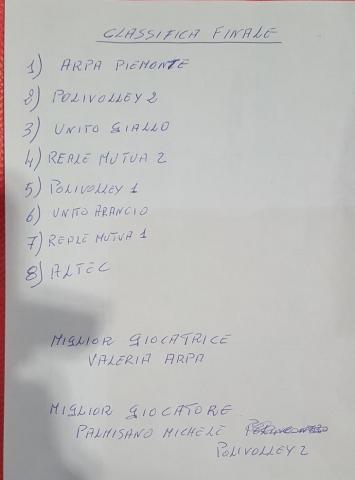 CLASSIFICA FINALE
1) ARPA PIEMONTE
2) POLIVOLLEY 2
3) UNITO GIALLO
4) REALE MUTUA 2
5) POLIVOLLEY 1
6) UNITO ARANCIO
7) REALE MUTUA 1
8) ALTEC
MIGLIOR GIOCATRICE
VALERIA ARPA
MIGLIOR GIOCATORE
PALMISANO MICHELE
POLIVOLLEY 2